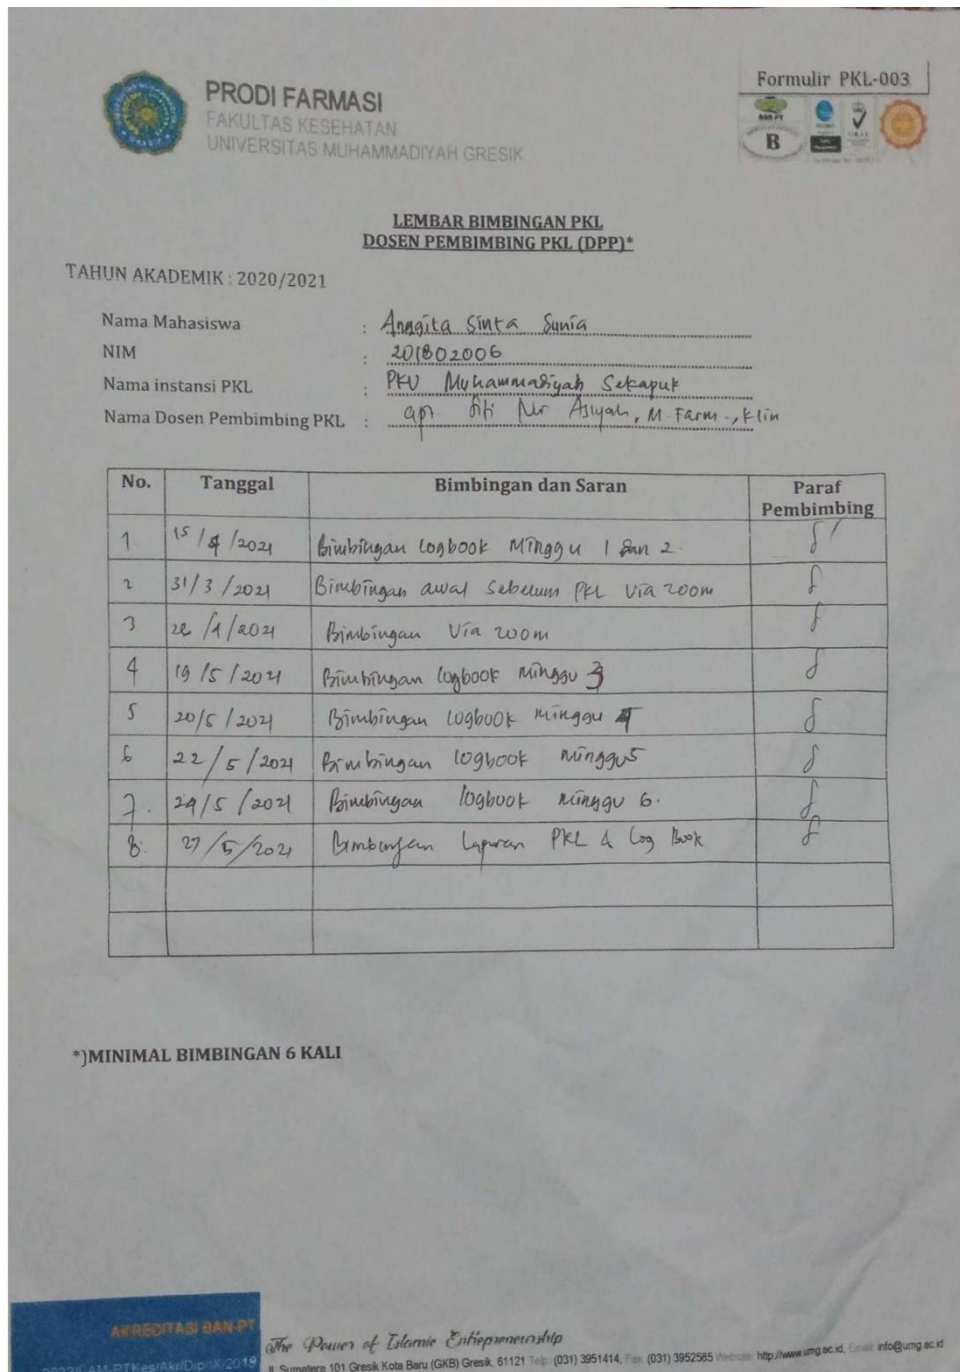 PRODI FARMASI
FAKULTAS KESEHATAN
UNIVERSITAS MUHAMMADIYAH GRESIK
Formulir PKL-003
BAN-PT
B
LEMBAR BIMBINGAN PKL
DOSEN PEMBIMBING PKL (DPP)*
TAHUN AKADEMIK : 2020/2021
Nama Mahasiswa : Anggita Sinta Sunia
NIM : 201802006
Nama instansi PKL : PKU Muhammadiyah Sekapuk
Nama Dosen Pembimbing PKL : apt Siti Nur Asiyah, M. Farm., Klin
No. Tanggal Bimbingan dan Saran Paraf Pembimbing
1 15/4/2021 Bimbingan logbook Minggu 1 dan 2.
2 31/3/2021 Bimbingan awal sebelum PKL via zoom
3 /2021 Bimbingan via zoom
4 19/5/2021 Bimbingan logbook minggu 3
5 20/5/2021 Bimbingan logbook minggu 4
6 22/5/2021 Bimbingan logbook minggu 5
7. 24/5/2021 Bimbingan logbook minggu 6.
8. 27/5/2021 Bimbingan Laporan PKL & Log Book
*)MINIMAL BIMBINGAN 6 KALI
AKREDITASI BAN-PT
The Power of Islamic Entrepreneurship
Jl. Sumatera 101 Gresik Kota Baru (GKB) Gresik, 61121 Telp: (031) 3951414, Fax: (031) 3952585 Website: http://www.umg.ac.id, Email: info@umg.ac.id